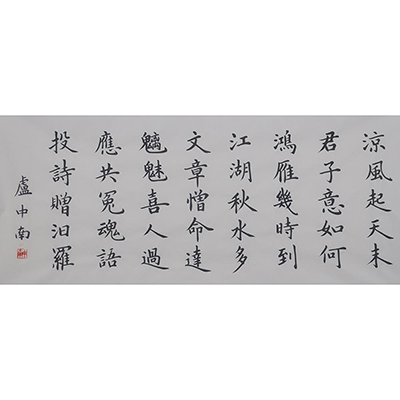 涼風起天末
君子意如何
鴻雁幾時到
江湖秋水多
文章憎命達
魑魅喜人過
應共冤魂語
投詩贈汨羅
盧中南